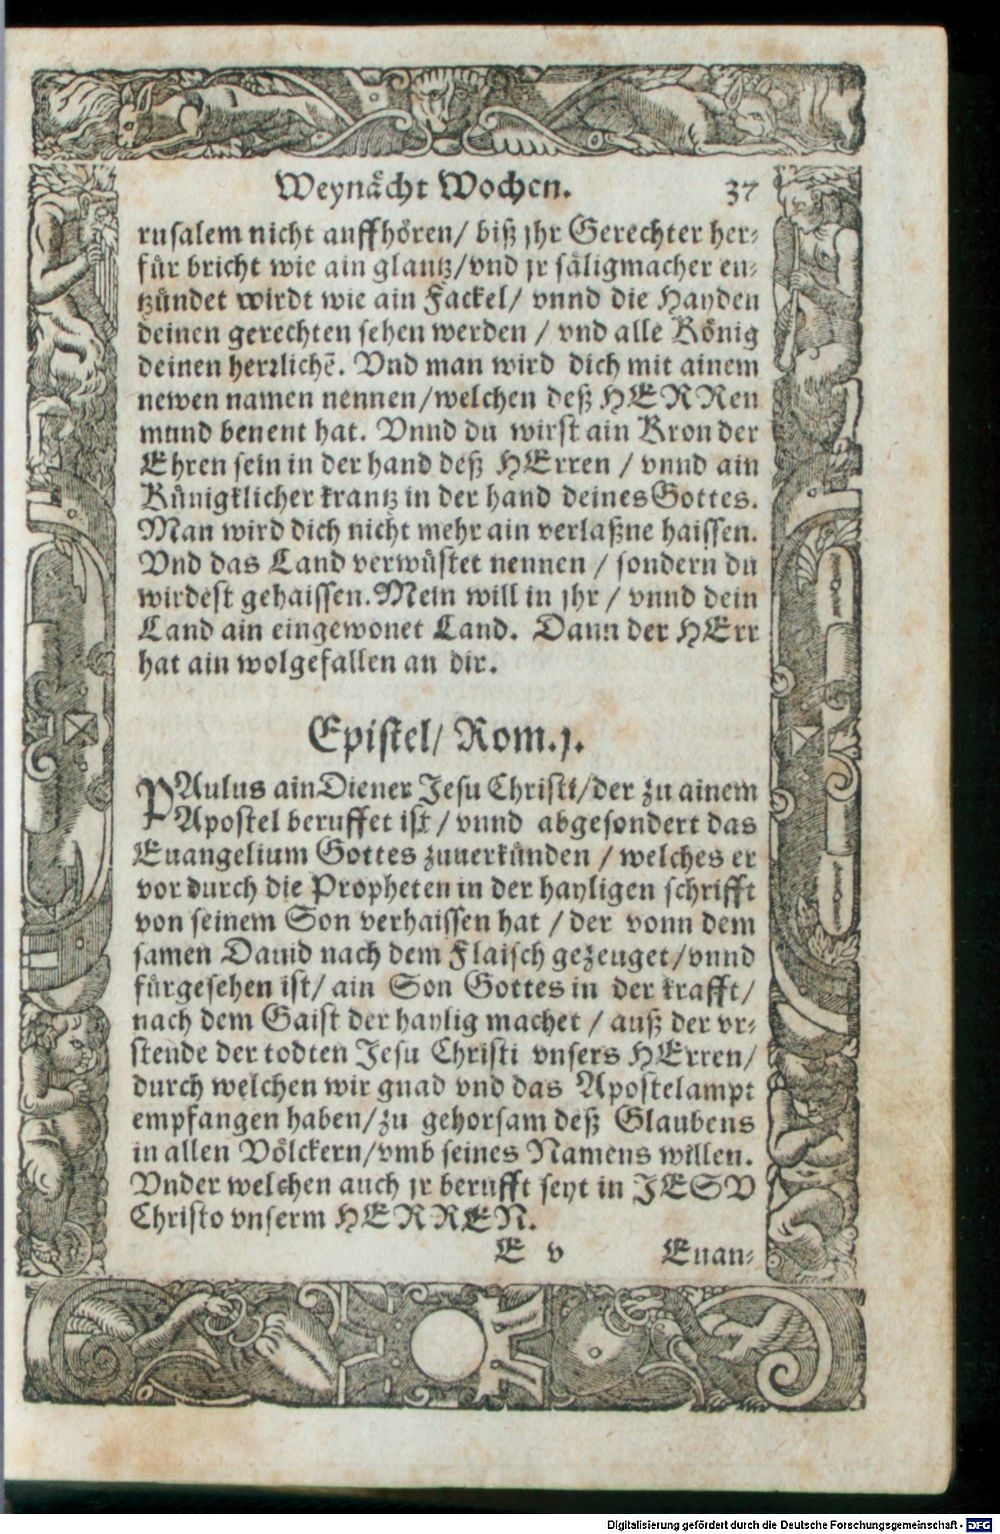 Weynächt Wochen. 37
rusalem nicht auffhören/ biß jhr Gerechter her⸗
für bricht wie ain glantz/vnd jr säligmacher en⸗
tzündet wirdt wie ain Fackel/ vnnd die Hayden
deinen gerechten sehen werden / vnd alle König
deinen herrlichē. Vnd man wird dich mit ainem
newen namen nennen/welchen deß HERRen
mund benent hat. Vnnd du wirst ain Kron der
Ehren sein in der hand deß HErren / vnnd ain
Künigklicher krantz in der hand deines Gottes.
Man wird dich nicht mehr ain verlaßne haissen.
Vnd das Land verwüstet nennen / sondern du
wirdest gehaissen. Mein will in jhr / vnnd dein
Land ain eingewonet Land. Dann der HErr
hat ain wolgefallen an dir.
Epistel/ Rom.j.
PAulus ain Diener Jesu Christi/der zu ainem
Apostel beruffet ist / vnnd abgesondert das
Euangelium Gottes zuuerkünden / welches er
vor durch die Propheten in der hayligen schrifft
von seinem Son verhaissen hat / der vonn dem
samen Dauid nach dem Flaisch gezeuget/vnnd
fürgesehen ist/ ain Son Gottes in der krafft/
nach dem Gaist der haylig machet / auß der vr⸗
stende der todten Jesu Christi vnsers HErren/
durch welchen wir gnad vnd das Apostelampt
empfangen haben/zu gehorsam deß Glaubens
in allen Völckern/vmb seines Namens willen.
Vnder welchen auch jr berufft seyt in JESV
Christo vnserm HERREN.
E v Euan⸗
Digitalisierung gefördert durch die Deutsche Forschungsgemeinschaft - DFG